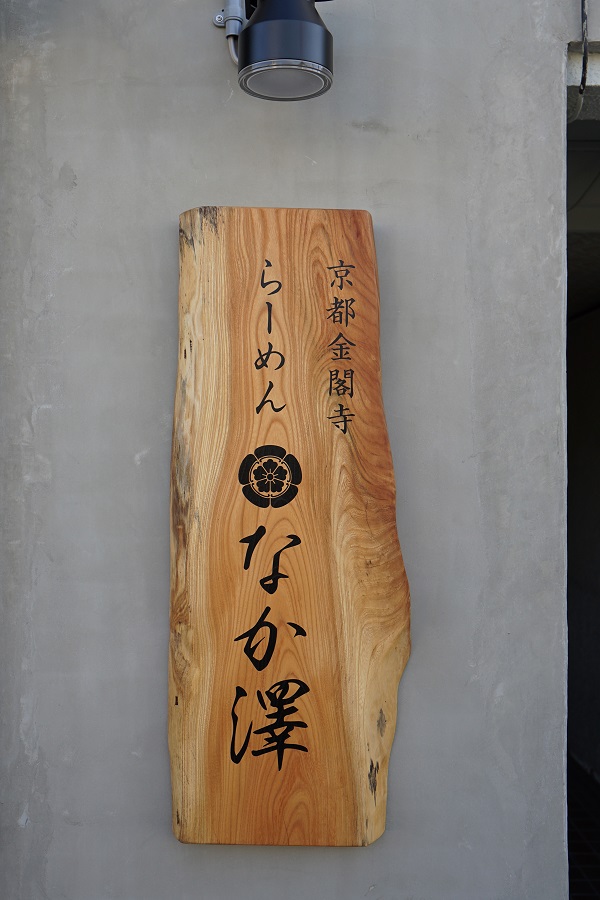 京都金閣寺
らーめん
なか澤